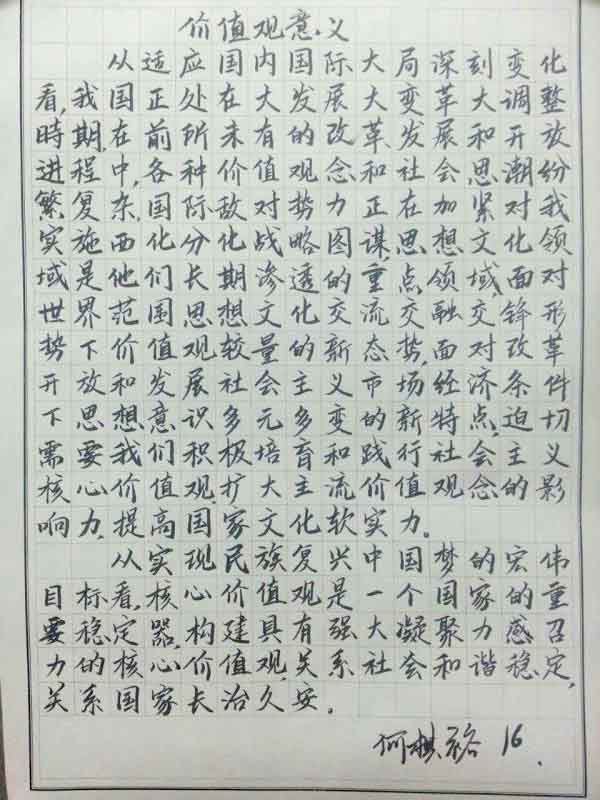 价值观意义
从适应国内国际大局深刻变化
看,我国正处在大发展大变革大调整
時期,在前所未有的改革、发展和开放
进程中,各种价值观念和社会思潮纷
繁复杂,国际敌对势力正在加紧对我
实施西化分化战略图谋,思想文化领
域是他们长期渗透的重点领域,面对
世界范国思想文化交流交融交锋形
势下价值观较量的新态势,面对改革
开放和发展社会主义市场经济条件
下思想意识多元多变的新特点,迫切
需要我们积极培育和践行社会主义
核心价值观,扩大主流价值观念的影
响力,提高国家文化软实力。
从实现民族复兴中国梦的宏伟
目标看,核心价值观是一个国家的重
要稳定器,构建具有强大凝聚力感召
力的核心价值观,关系社会和谐稳定,
关系国家长治久安。
何棋 16.